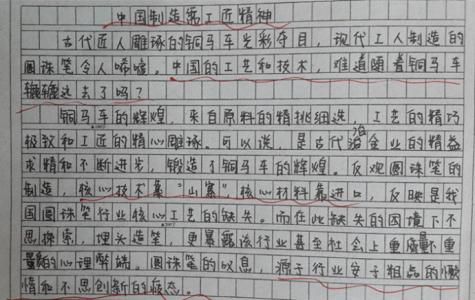 中国制造需工匠精神
古代匠人雕琢的铜马车光彩夺目，现代工人制造的
圆珠笔令人唏嘘。中国的工艺和技术，难道随着铜马车
辘辘远去了吗？
铜马车的辉煌，来自原料的精挑细选，工艺的精巧
极致和工匠的精心雕琢。可以说，是古代冶金业的精益
求精和不断进步，锻造了铜马车的辉煌。反观圆珠笔的
制造，核心技术靠“山寨”，核心材料靠进口，反映是我
国圆珠笔行业核心工艺的缺失。而在此缺失的困境下不
思探索，埋头造笔，更暴露该行业甚至社会上重量不重
质的心理弊端。圆珠笔的叹息，源于行业安于粗品的懒
惰和不思创新的疲态。